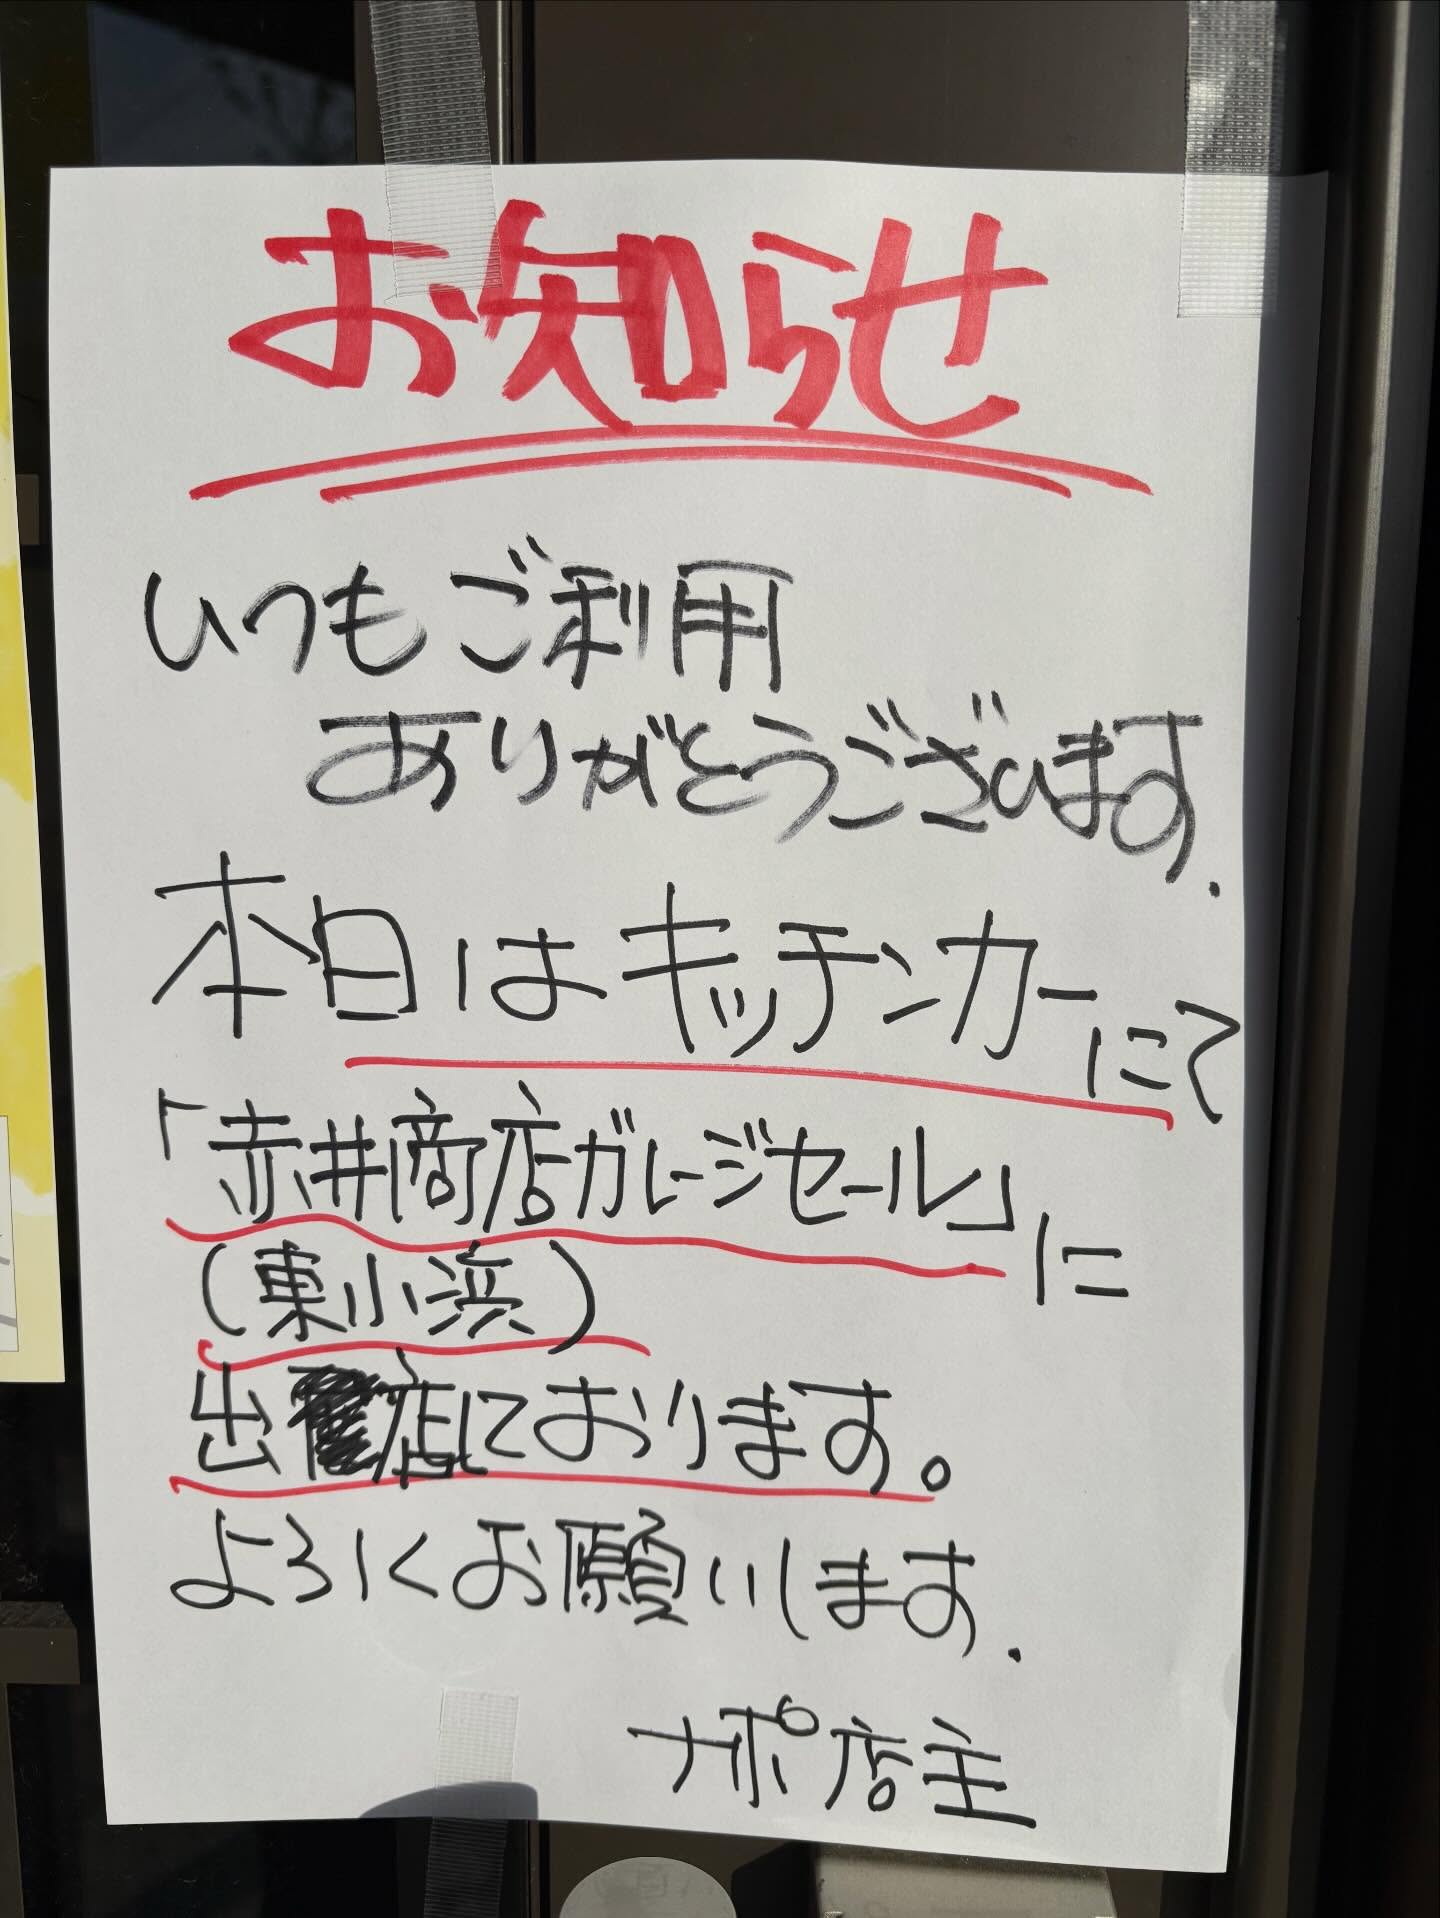 お知らせ
いつもご利用
ありがとうございます.
本日はキッチンカーにて
「赤井商店ガレージセール」に
(東小浜)
出店しております。
よろしくお願いします.
ナポ店主